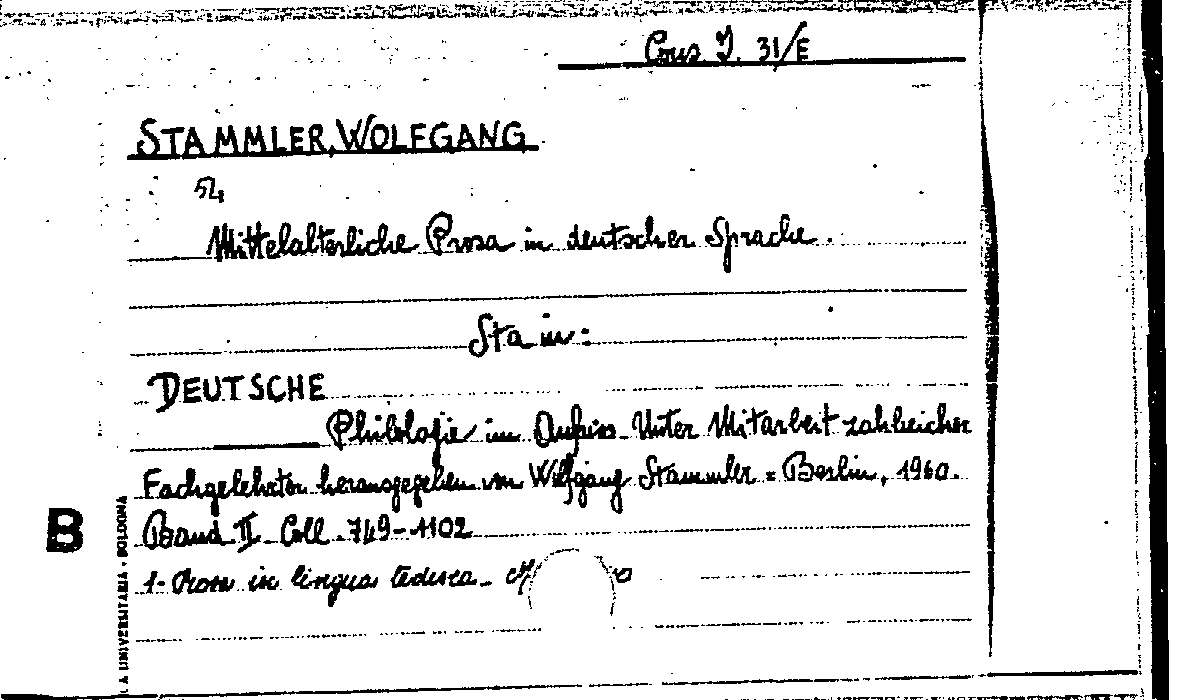 Cons. I. 31/E
STAMMLER, WOLFGANG
Mittelalterliche Prosa in deutscher Sprache.
Sta in:
DEUTSCHE
Philologie im Aufriss. Unter Mitarbeit zahlreicher
Fachgelehrter herausgegeben von Wolfgang Stammler = Berlin, 1960.
Band II. Coll. 749-1102
1- Prosa in lingua tedesca -
B
A UNIVERSITARIA - BOLOGNA